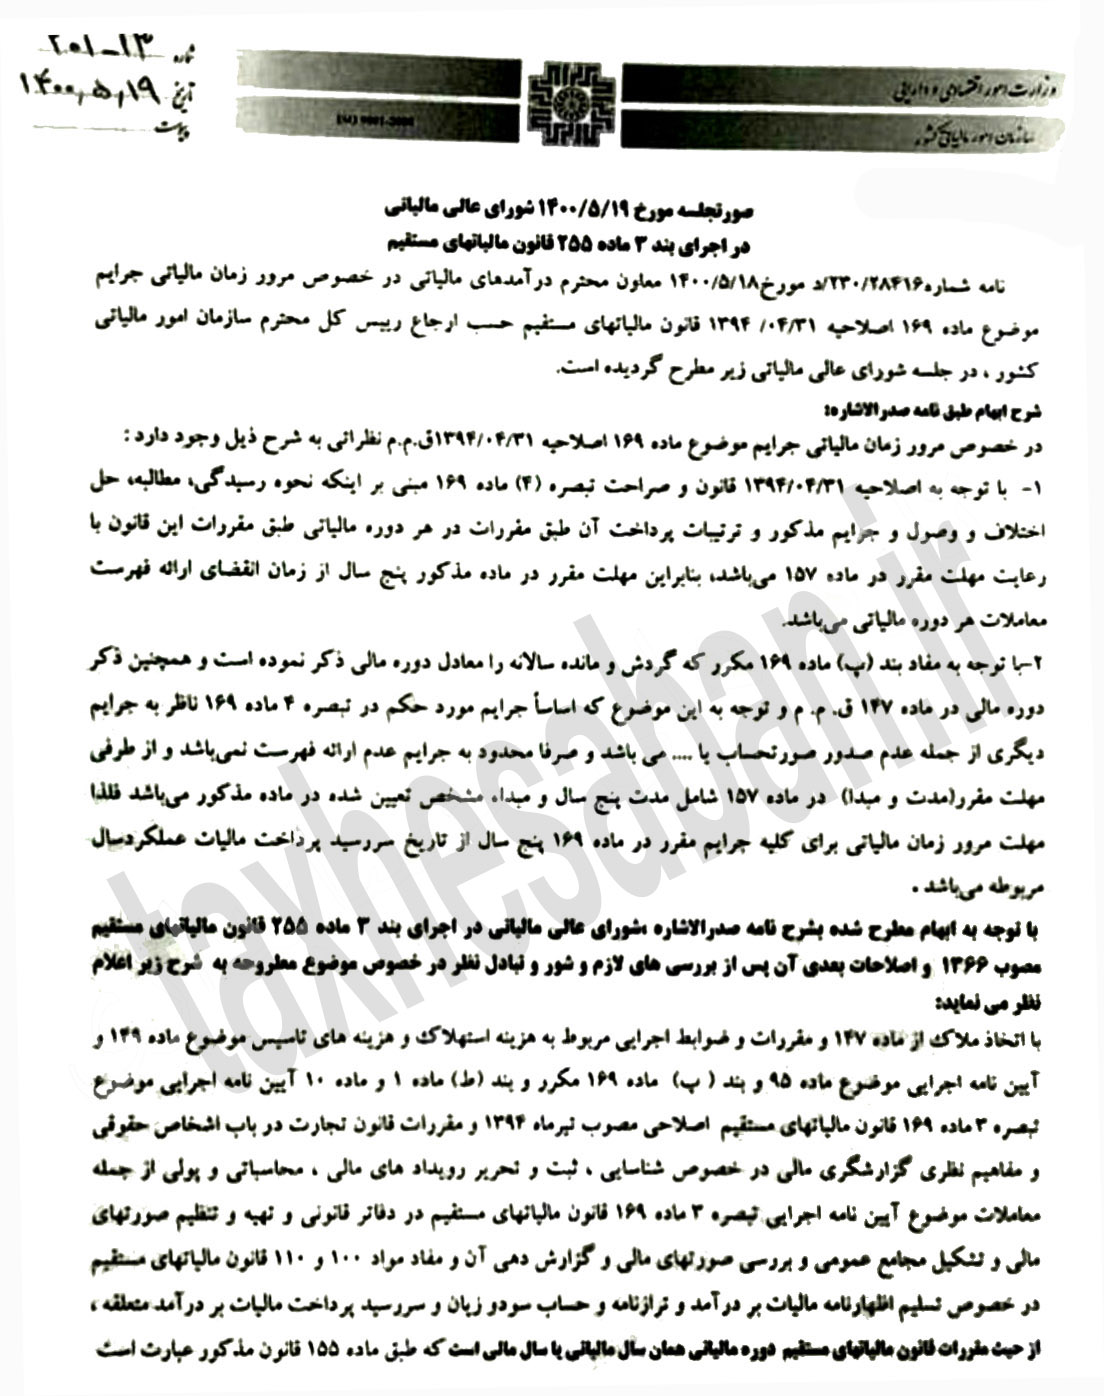 شماره ۲۰۱-۱۳
تاریخ ۱۴۰۰,۵,۱۹
پیوست
وزارت امور اقتصادی و دارایی
سازمان امور مالیاتی کشور
صورتجلسه مورخ ۱۴۰۰/۵/۱۹ شورای عالی مالیاتی
در اجرای بند ۳ ماده ۲۵۵ قانون مالیاتهای مستقیم
نامه شماره۲۳۰/۲۸۴۱۶/د مورخ۱۴۰۰/۵/۱۸ معاون محترم درآمدهای مالیاتی در خصوص مرور زمان مالیاتی جرایم
موضوع ماده ۱۶۹ اصلاحیه ۱۳۹۴/۰۴/۳۱ قانون مالیاتهای مستقیم حسب ارجاع رییس کل محترم سازمان امور مالیاتی
کشور ، در جلسه شورای عالی مالیاتی زیر مطرح گردیده است.
شرح ابهام طبق نامه صدرالاشاره:
در خصوص مرور زمان مالیاتی جرایم موضوع ماده ۱۶۹ اصلاحیه ۱۳۹۴/۰۴/۳۱ق.م.م نظراتی به شرح ذیل وجود دارد :
۱- با توجه به اصلاحیه ۱۳۹۴/۰۴/۳۱ قانون و صراحت تبصره (۴) ماده ۱۶۹ مبنی بر اینکه نحوه رسیدگی، مطالبه، حل
اختلاف و وصول و جرایم مذکور و ترتیبات پرداخت آن طبق مقررات در هر دوره مالیاتی طبق مقررات این قانون با
رعایت مهلت مقرر در ماده ۱۵۷ می‌باشد، بنابراین مهلت مقرر در ماده مذکور پنج سال از زمان انقضای ارائه فهرست
معاملات هر دوره مالیاتی می‌باشد.
۲-با توجه به مفاد بند (پ) ماده ۱۶۹ مکرر که گردش و مانده سالانه را معادل دوره مالی ذکر نموده است و همچنین ذکر
دوره مالی در ماده ۱۴۷ ق. م. م و توجه به این موضوع که اساساً جرایم مورد حکم در تبصره ۴ ماده ۱۶۹ ناظر به جرایم
دیگری از جمله عدم صدور صورتحساب یا .... می باشد و صرفا محدود به جرایم عدم ارائه فهرست نمی‌باشد و از طرفی
مهلت مقرر(مدت و مبدا) در ماده ۱۵۷ شامل مدت پنج سال و مبداء مشخص تعیین شده در ماده مذکور می‌باشد فلذا
مهلت مرور زمان مالیاتی برای کلیه جرایم مقرر در ماده ۱۶۹ پنج سال از تاریخ سررسید پرداخت مالیات عملکردسال
مربوطه می‌باشد .
با توجه به ابهام مطرح شده بشرح نامه صدرالاشاره ،شورای عالی مالیاتی در اجرای بند ۳ ماده ۲۵۵ قانون مالیاتهای مستقیم
مصوب ۱۳۶۶ و اصلاحات بعدی آن پس از بررسی های لازم و شور و تبادل نظر در خصوص موضوع مطروحه به شرح زیر اعلام
نظر می نماید:
با اتخاذ ملاک از ماده ۱۴۷ و مقررات و ضوابط اجرایی مربوط به هزینه استهلاک و هزینه های تاسیس موضوع ماده ۱۴۹ و
آیین نامه اجرایی موضوع ماده ۹۵ و بند ( پ) ماده ۱۶۹ مکرر و بند (ط) ماده ۱ و ماده ۱۰ آیین نامه اجرایی موضوع
تبصره ۳ ماده ۱۶۹ قانون مالیاتهای مستقیم اصلاحی مصوب تیرماه ۱۳۹۴ و مقررات قانون تجارت در باب اشخاص حقوقی
و مفاهیم نظری گزارشگری مالی در خصوص شناسایی ، ثبت و تحریر رویداد های مالی ، محاسباتی و پولی از جمله
معاملات موضوع آیین نامه اجرایی تبصره ۳ ماده ۱۶۹ قانون مالیاتهای مستقیم در دفاتر قانونی و تهیه و تنظیم صورتهای
مالی و تشکیل مجامع عمومی و بررسی صورتهای مالی و گزارش دهی آن و مفاد مواد ۱۰۰ و ۱۱۰ قانون مالیاتهای مستقیم
در خصوص تسلیم اظهارنامه مالیات بر درآمد و ترازنامه و حساب سودو زیان و سررسید پرداخت مالیات بر درآمد متعلقه ،
از حیث مقررات قانون مالیاتهای مستقیم دوره مالیاتی همان سال مالیاتی یا سال مالی است که طبق ماده ۱۵۵ قانون مذکور عبارت است
taxhesaban.ir